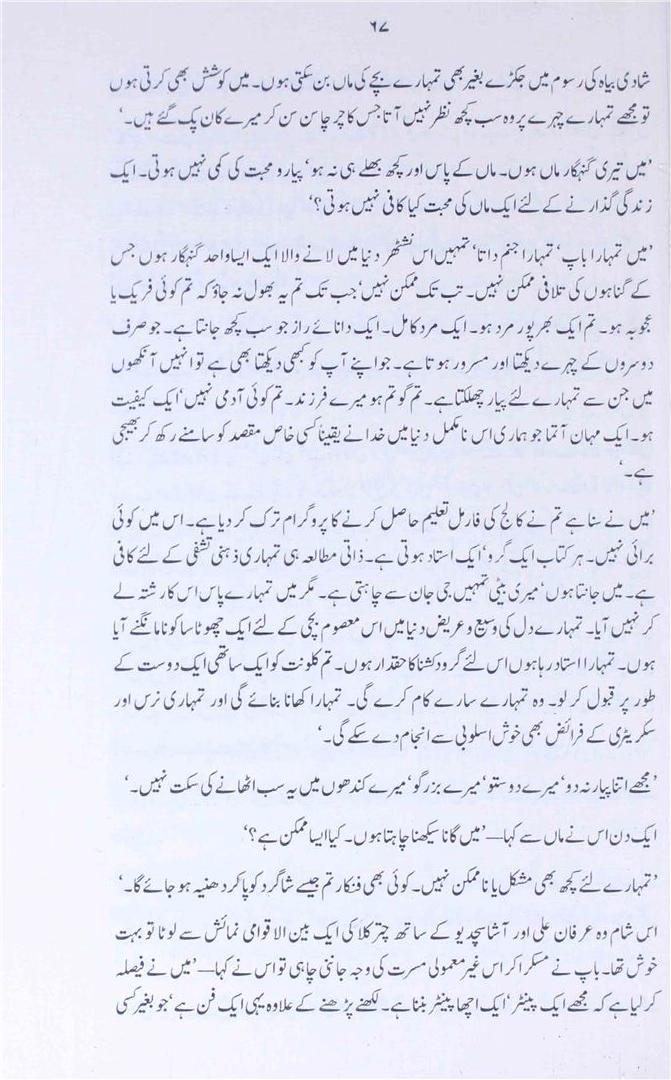 ۶۷
شادی بیاہ کی رسوم میں جکڑے بغیر بھی تمہارے بچے کی ماں بن سکتی ہوں۔ میں کوشش بھی کرتی ہوں
تو مجھے تمہارے چہرے پر وہ سب کچھ نظر نہیں آتا جس کا چرچا سن سن کر میرے کان پک گئے ہیں۔‘
’میں تیری گنہگار ماں ہوں۔ ماں کے پاس اور کچھ بھلے ہی نہ ہو‘ پیار و محبت کی کمی نہیں ہوتی۔ ایک
زندگی گذارنے کے لئے ایک ماں کی محبت کیا کافی نہیں ہوتی؟‘
’میں تمہارا باپ‘ تمہارا جنم داتا‘ تمہیں اس نشٹھر دنیا میں لانے والا ایک ایسا واحد گنہگار ہوں جس
کے گناہوں کی تلافی ممکن نہیں۔ تب تک ممکن نہیں‘ جب تک تم یہ بھول نہ جاؤ کہ تم کوئی فریک یا
عجوبہ ہو۔ تم ایک بھرپور مرد ہو۔ ایک مرد کامل۔ ایک دانائے راز جو سب کچھ جانتا ہے۔ جو صرف
دوسروں کے چہرے دیکھتا اور مسرور ہوتا ہے۔ جو اپنے آپ کو کبھی دیکھتا بھی ہے تو انہیں آنکھوں
میں جن سے تمہارے لئے پیار چھلکتا ہے۔ تم گوتم ہو میرے فرزند۔ تم کوئی آدمی نہیں‘ ایک کیفیت
ہو۔ ایک مہان آتما جو ہماری اس نا مکمل دنیا میں خدا نے یقیناً کسی خاص مقصد کو سامنے رکھ کر بھیجی
ہے۔‘
’میں نے سنا ہے تم نے کالج کی فارمل تعلیم حاصل کرنے کا پروگرام ترک کر دیا ہے۔ اس میں کوئی
برائی نہیں۔ ہر کتاب ایک گرو‘ ایک استاد ہوتی ہے۔ ذاتی مطالعہ ہی تمہاری ذہنی تشفی کے لئے کافی
ہے۔ میں جانتا ہوں‘ میری بیٹی تمہیں جی جان سے چاہتی ہے۔ مگر میں تمہارے پاس اس کا رشتہ لے
کر نہیں آیا۔ تمہارے دل کی وسیع و عریض دنیا میں اس معصوم بچی کے لئے ایک چھوٹا سا کونا مانگنے آیا
ہوں۔ تمہارا استاد رہا ہوں اس لئے گرو دکشنا کا حقدار ہوں۔ تم کلونت کو ایک ساتھی ایک دوست کے
طور پر قبول کر لو۔ وہ تمہارے سارے کام کرے گی۔ تمہارا کھانا بنائے گی اور تمہاری نرس اور
سکریٹری کے فرائض بھی خوش اسلوبی سے انجام دے سکے گی۔‘
’مجھے اتنا پیار نہ دو‘ میرے دوستو‘ میرے بزرگو‘ میرے کندھوں میں یہ سب اٹھانے کی سکت نہیں۔‘
ایک دن اس نے ماں سے کہا—’میں گانا سیکھنا چاہتا ہوں۔ کیا ایسا ممکن ہے؟‘
’تمہارے لئے کچھ بھی مشکل یا نا ممکن نہیں۔ کوئی بھی فنکار تم جیسے شاگرد کو پا کر دھنیہ ہو جائے گا۔‘
اس شام وہ عرفان علی اور آشا سچدیو کے ساتھ چتر کلا کی ایک بین الاقوامی نمائش سے لوٹا تو بہت
خوش تھا۔ باپ نے مسکرا کر اس غیر معمولی مسرت کی وجہ جاننی چاہی تو اس نے کہا—’میں نے فیصلہ
کر لیا ہے کہ مجھے ایک پینٹر‘ ایک اچھا پینٹر بننا ہے۔ لکھنے پڑھنے کے علاوہ یہی ایک فن ہے‘ جو بغیر کسی